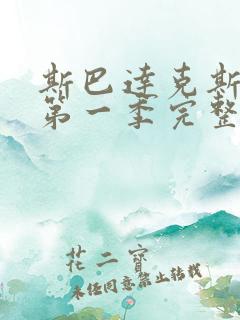 斯巴达克斯
第一季完整
花二宝
未经同意禁止转载